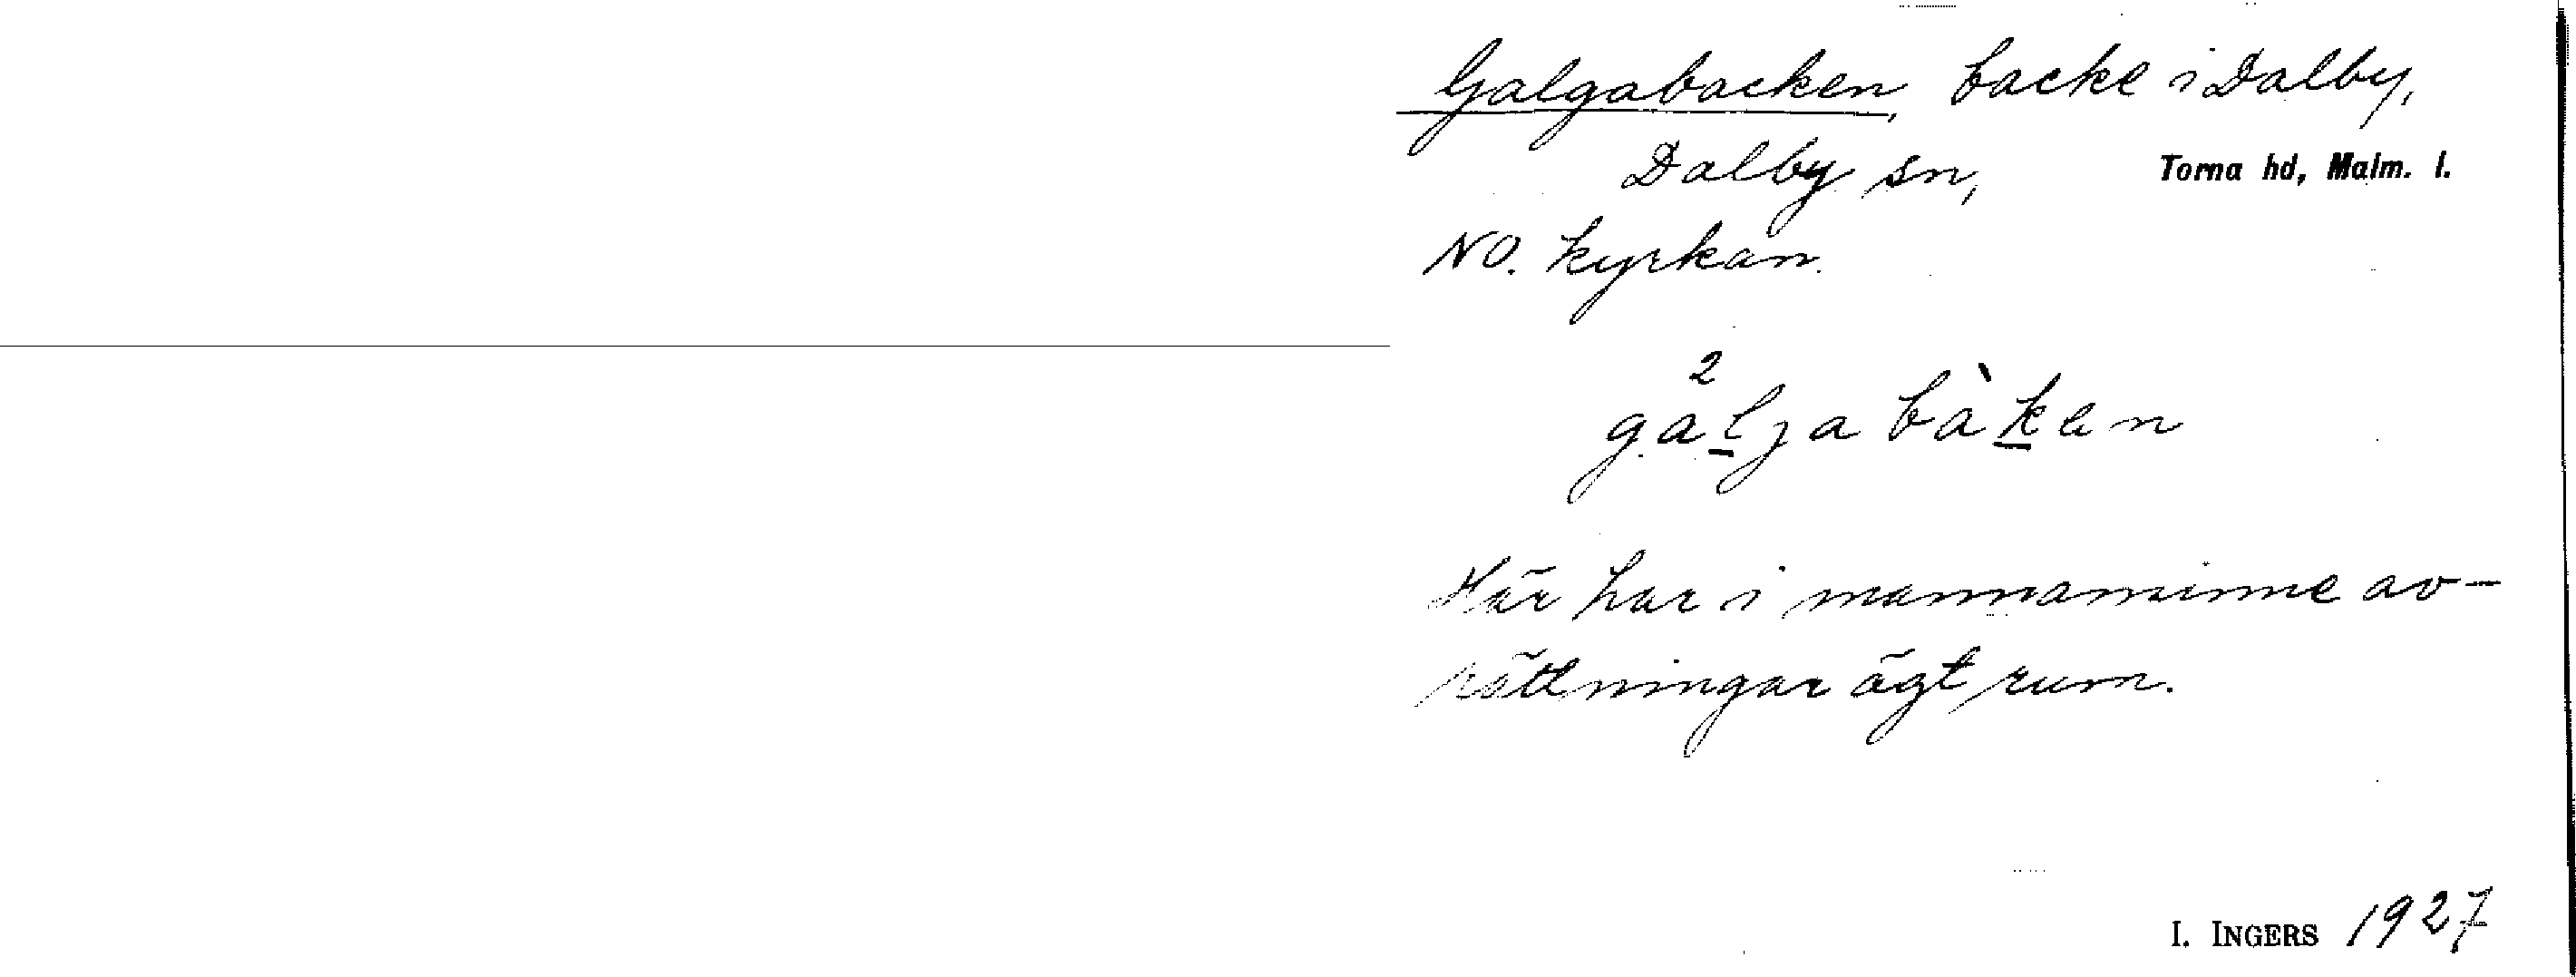 Galgabacken, backe i Dalby,
Dalby sn, Torna hd, Malm. l.
NO. kyrkan.
2
galjabàken
Här har i mannaminne av-
rättningar ägt rum.
I. INGERS 1927